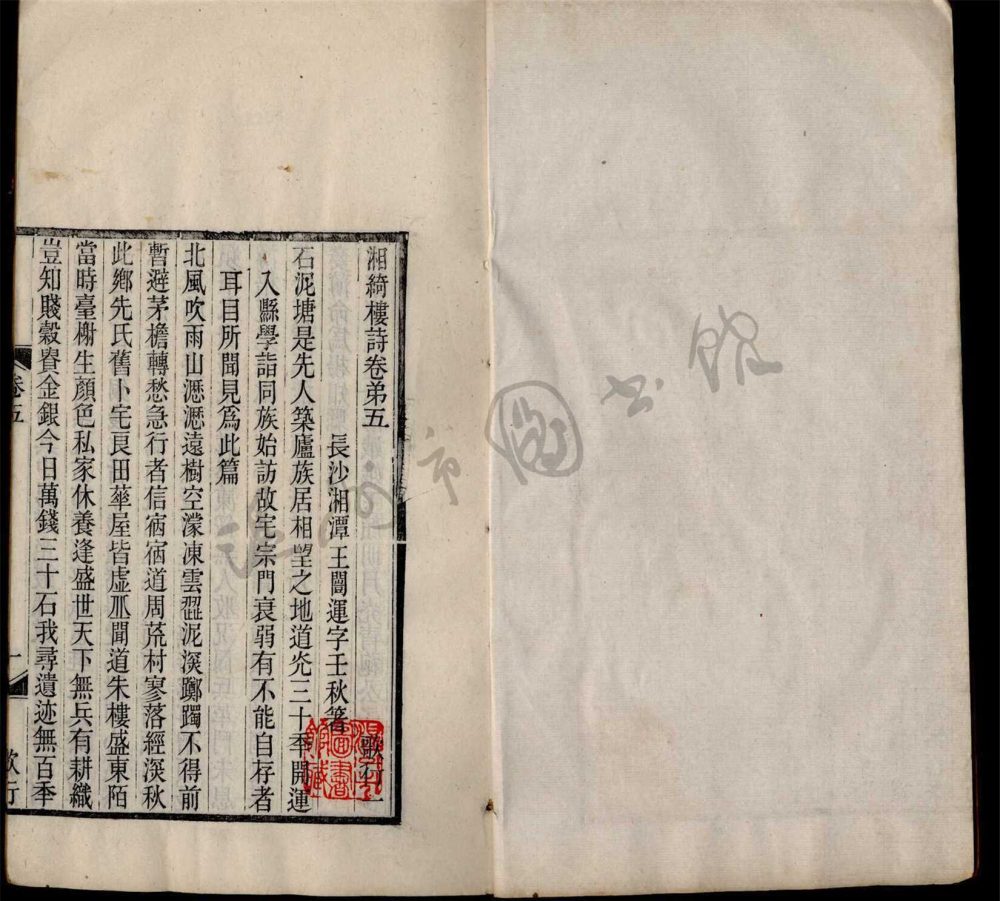 湘綺樓詩卷弟五
歌行一
長沙湘潭王闓運字壬秋箸
石泥塘是先人築廬族居相朢之地道光三十秊開運
入縣學詣同族始訪故宅宗門衰弱有不能自存者
耳目所聞見爲此篇
北風吹雨山瀝瀝遠樹空濛凍雲澀泥深躑躅不得前
暫避茅檐轉愁急行者信宿宿道周荒村寥落經深秋
此鄉先氏舊卜宅良田華屋皆虛丠聞道朱樓盛東陌
當時臺榭生顏色私家休養逢盛世天下無兵有耕織
豈知賤穀賫金銀今日萬錢三十石我尋遺迹無百秊
卷五
一
歌行
市圖書館
圖書
館藏